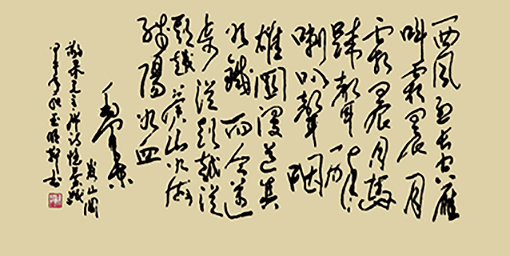 西風烈長空雁
叫霜晨月
霜晨月馬
蹄聲碎
喇叭聲咽
雄關漫道真
如鐵而今邁
步從頭越從
頭越蒼山如海
殘陽如血
毛澤東
婁山關
敬录毛主席诗憶秦娥
书